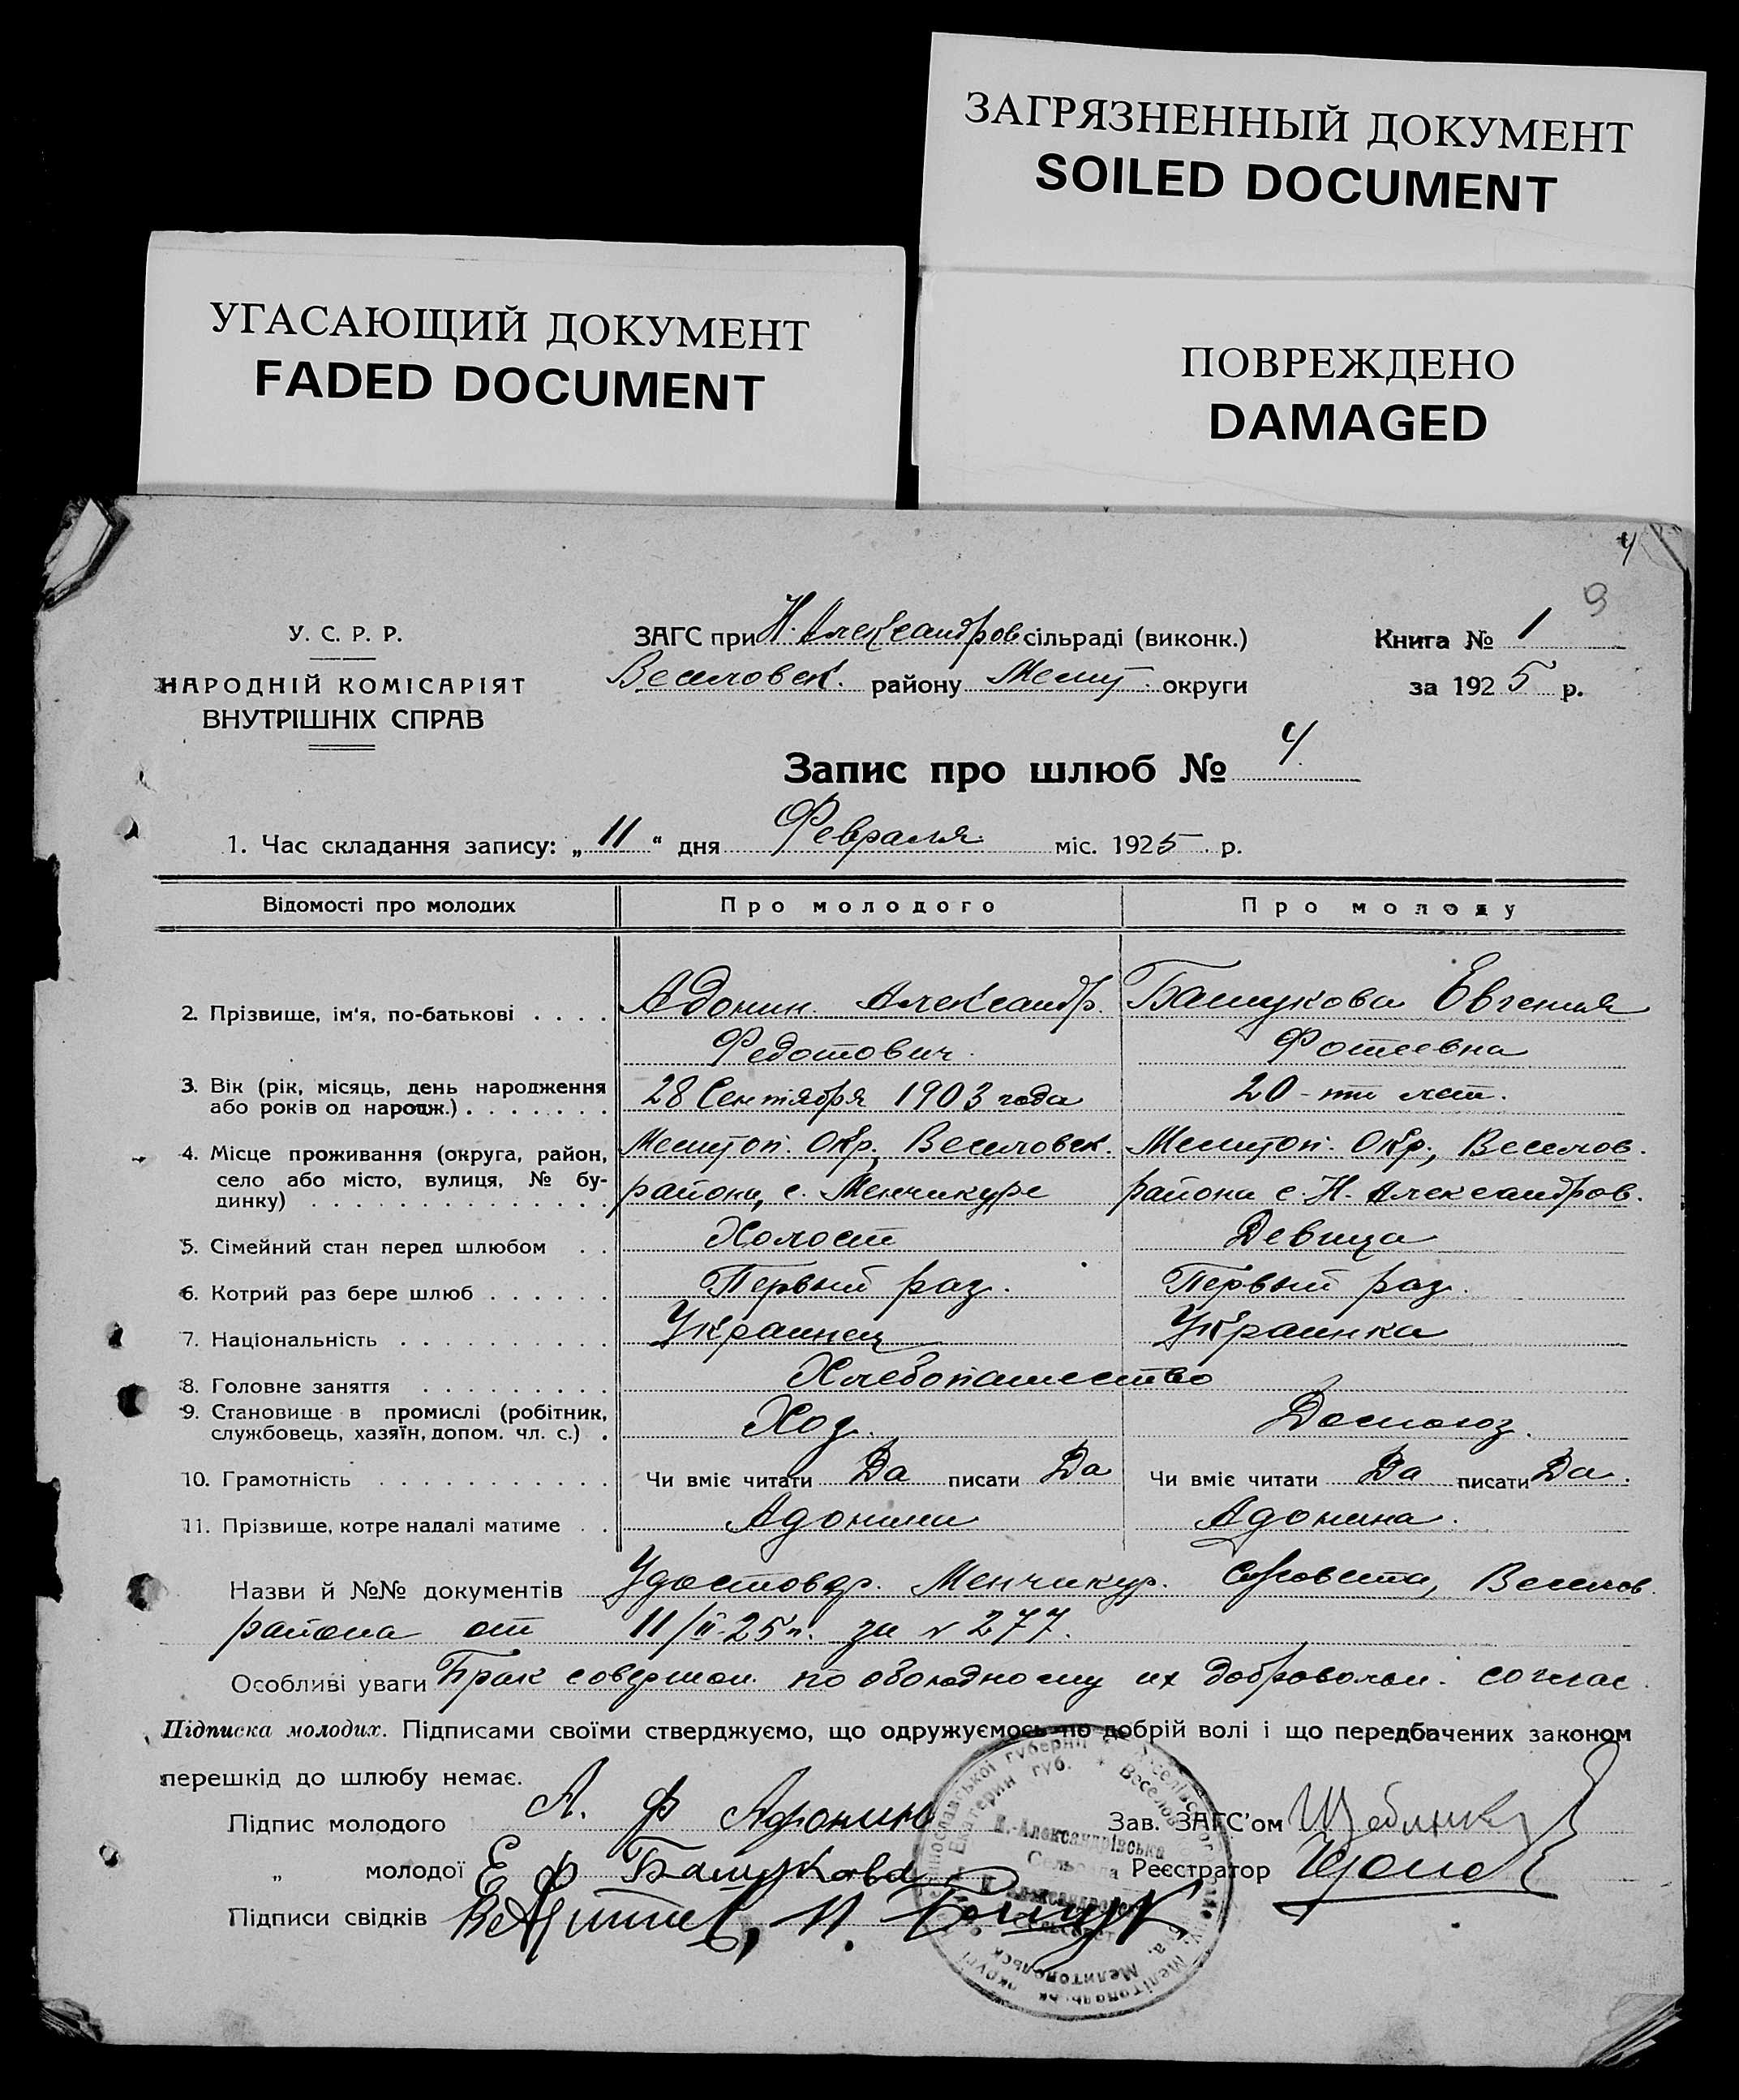 ЗАГРЯЗНЕННЫЙ ДОКУМЕНТ
SOILED DOCUMENT
УГАСАЮЩИЙ ДОКУМЕНТ
FADED DOCUMENT
ПОВРЕЖДЕНО
DAMAGED
4
9
У. С. Р. Р.
НАРОДНІЙ КОМІСАРІЯТ
ВНУТРІШНІХ СПРАВ
ЗАГС при Н. Александров сільраді (виконк.)
Веселовск. району Мелит. округи
Книга № 1
за 1925 р.
Запис про шлюб № 4
1. Час складання запису: „ 11 “ дня Февраля міс. 1925 р.
Відомості про молодих Про молодого Про молоду
2. Прізвище, ім'я, по-батькові . . . . Адонин Александр. Башукова Евгения
Федотович Фотеевна
3. Вік (рік, місяць, день народження
або років од народж.) . . . . . . . 28 Сентября 1903 года 20-ти лет.
4. Місце проживання (округа, район, Мелитоп. Окр., Веселовск. Мелитоп. Окр., Веселов.
село або місто, вулиця, № бу-
динку) . . . . . . . . . . . . . района, с. Менчикуре района с. Н. Александров.
5. Сімейний стан перед шлюбом . . Холост Девица
6. Котрий раз бере шлюб . . . . . . Первый раз. Первый раз.
7. Національність . . . . . . . . . . Украинец Украинка
8. Головне заняття . . . . . . . . . Хлебопашество
9. Становище в промислі (робітник,
службовець, хазяїн, допом. чл. с.) . Хоз.
10. Грамотність . . . . . . . . . . . Чи вміє читати Да писати Да Чи вміє читати Да писати Да.
11. Прізвище, котре надалі матиме . . Адонин Адонина.
Назви й №№ документів Удостовер. Менчикур. Сельсовета, Веселов.
района от 11/II-25 г. за № 277.
Особливі уваги Брак совершен по обоюдному их добровольн. соглас.
Підписка молодих. Підписами своїми стверджуємо, що одружуємось по добрій волі і що передбачених законом
перешкід до шлюбу немає.
Підпис молодого А. Ф Афонин Зав. ЗАГС'ом
„ молодої Е Ф Башукова Реєстратор
Підписи свідків
Н.-Александрівська
Сельрада